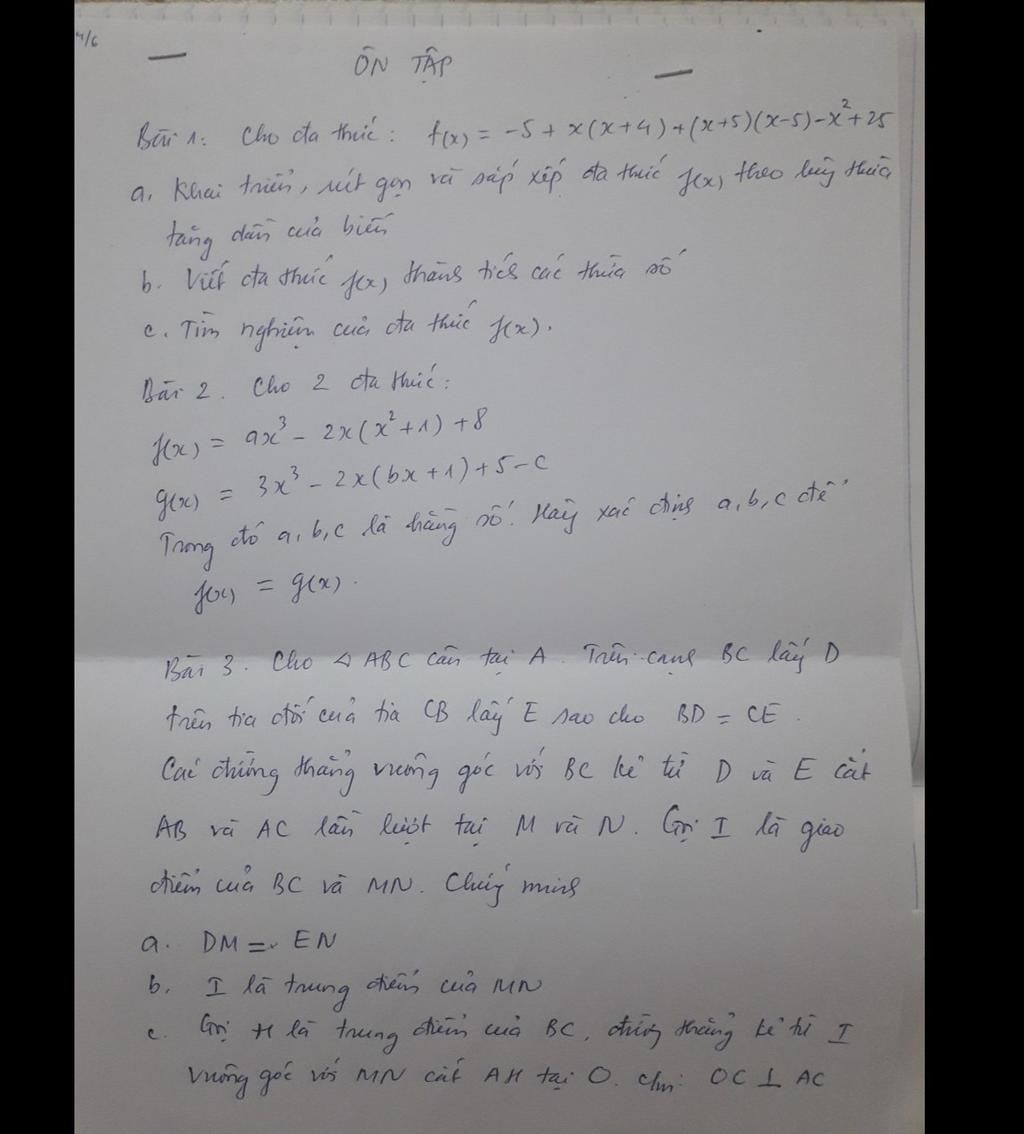 4/6
ÔN TẬP
Bài 1: Cho đa thức: f(x) = -5 + x(x+4) + (x+5)(x-5) - x² + 25
a. Khai triển, rút gọn và sắp xếp đa thức f(x) theo luỹ thừa
tăng dần của biến
b. Viết đa thức f(x) thành tích các thừa số
c. Tìm nghiệm của đa thức f(x).
Bài 2. Cho 2 đa thức:
f(x) = ax³ - 2x(x²+1) + 8
g(x) = 3x³ - 2x(bx+1) + 5 - c
Trong đó a, b, c là hằng số. Hãy xác định a, b, c để
f(x) = g(x).
Bài 3. Cho △ ABC cân tại A. Trên cạnh BC lấy D
trên tia đối của tia CB lấy E sao cho BD = CE.
Các đường thẳng vuông góc với BC kẻ từ D và E cắt
AB và AC lần lượt tại M và N. Gọi I là giao
điểm của BC và MN. Chứng minh
a. DM = EN
b. I là trung điểm của MN
c. Gọi H là trung điểm của BC, đường thẳng kẻ từ I
vuông góc với MN cắt AH tại O. Cm: OC ⊥ AC